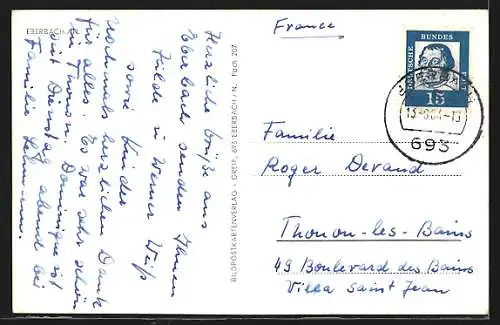 EBERBACH / N.
Herzliche Grüße aus
Eberbach senden Ihnen
Hilde u. Werner Weiß
sowie Kinder
Nochmals herzlichen Dank
für alles. Es war sehr schön
in Thonon. Dominique ist
seit Dienstag abend bei
Familie Lehmann.
BILDPOSTKARTENVERLAG - GREIF, 693 EBERBACH / N. Fach 207
France
DEUTSCHE BUNDESPOST
15
693
Familie
Roger Devaud
Thonon-les-Bains
49 Boulevard des Bains
Villa Saint Jean